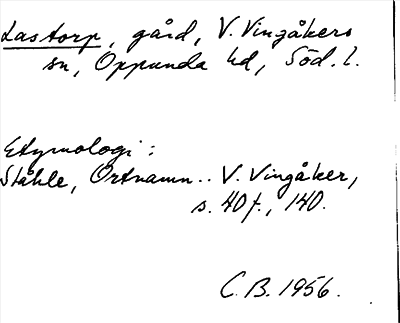 Lastorp, gård, V. Vingåkers
sn, Oppunda hd, Söd. l.
Etymologi:
Ståhle, Ortnamn.. V. Vingåker,
s. 40 f., 140.
C. B. 1956.